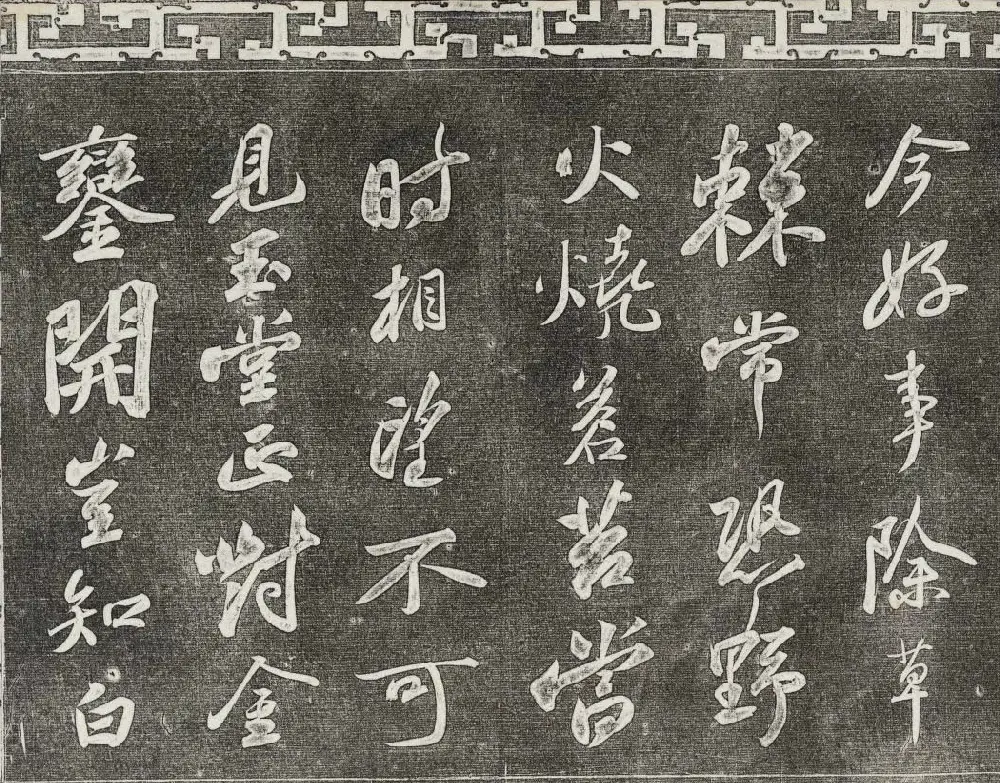 今好事除草
棘常恐野
火燒苕苕當
时相望不可
見玉堂正對金
鑾開豈知白